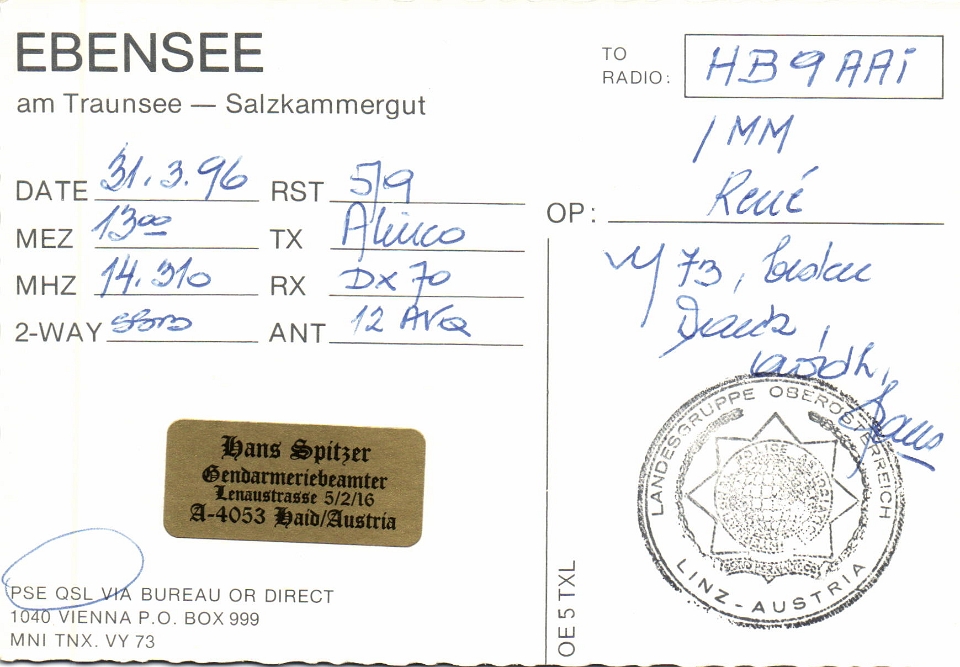 EBENSEE
am Traunsee — Salzkammergut
TO
RADIO: HB9AAI
/MM
OP: René
DATE 31.3.96 RST 5/9
MEZ 13⁰⁰ TX Alinco
MHZ 14.310 RX DX 70
2-WAY ANT 12 AVQ
Vy 73,
Dank,
Hans
Hans Spitzer
Gendarmeriebeamter
Lenaustrasse 5/2/16
A-4053 Haid/Austria
LANDESGRUPPE OBERÖSTERREICH
LINZ-AUSTRIA
PSE QSL VIA BUREAU OR DIRECT
1040 VIENNA P.O. BOX 999
MNI TNX. VY 73
OE 5 TXL